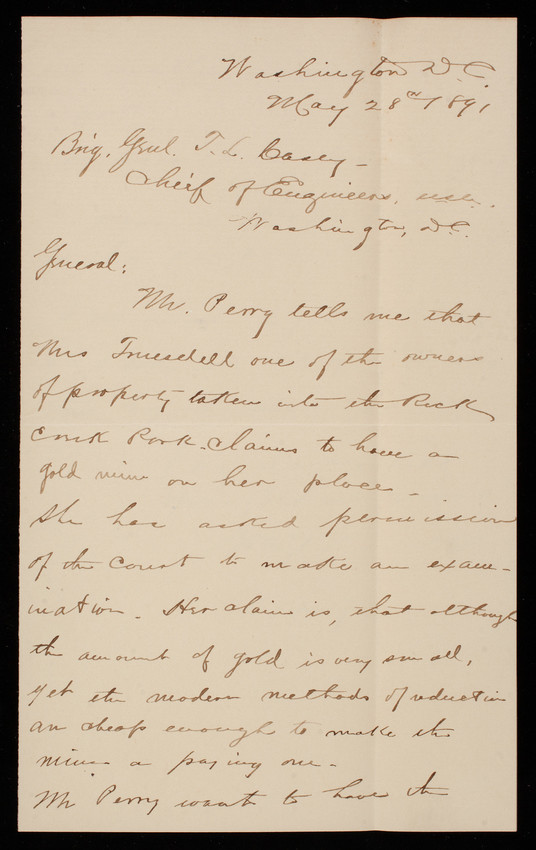 Washington D.C.
May 28th 1891
Brig. Genl. T. L. Casey -
Chief of Engineers, USA.
Washington, D.C.
General:
Mr. Perry tells me that
Mrs Truesdell one of the owners
of property taken into the Rock
Creek Park - claims to have a
gold mine on her place -
She has asked permission
of the Court to make an exam-
ination - Her claim is, that although
the amount of gold is very small,
yet the modern methods of reduction
are cheap enough to make the
mine a paying one -
Mr Perry wants to have the